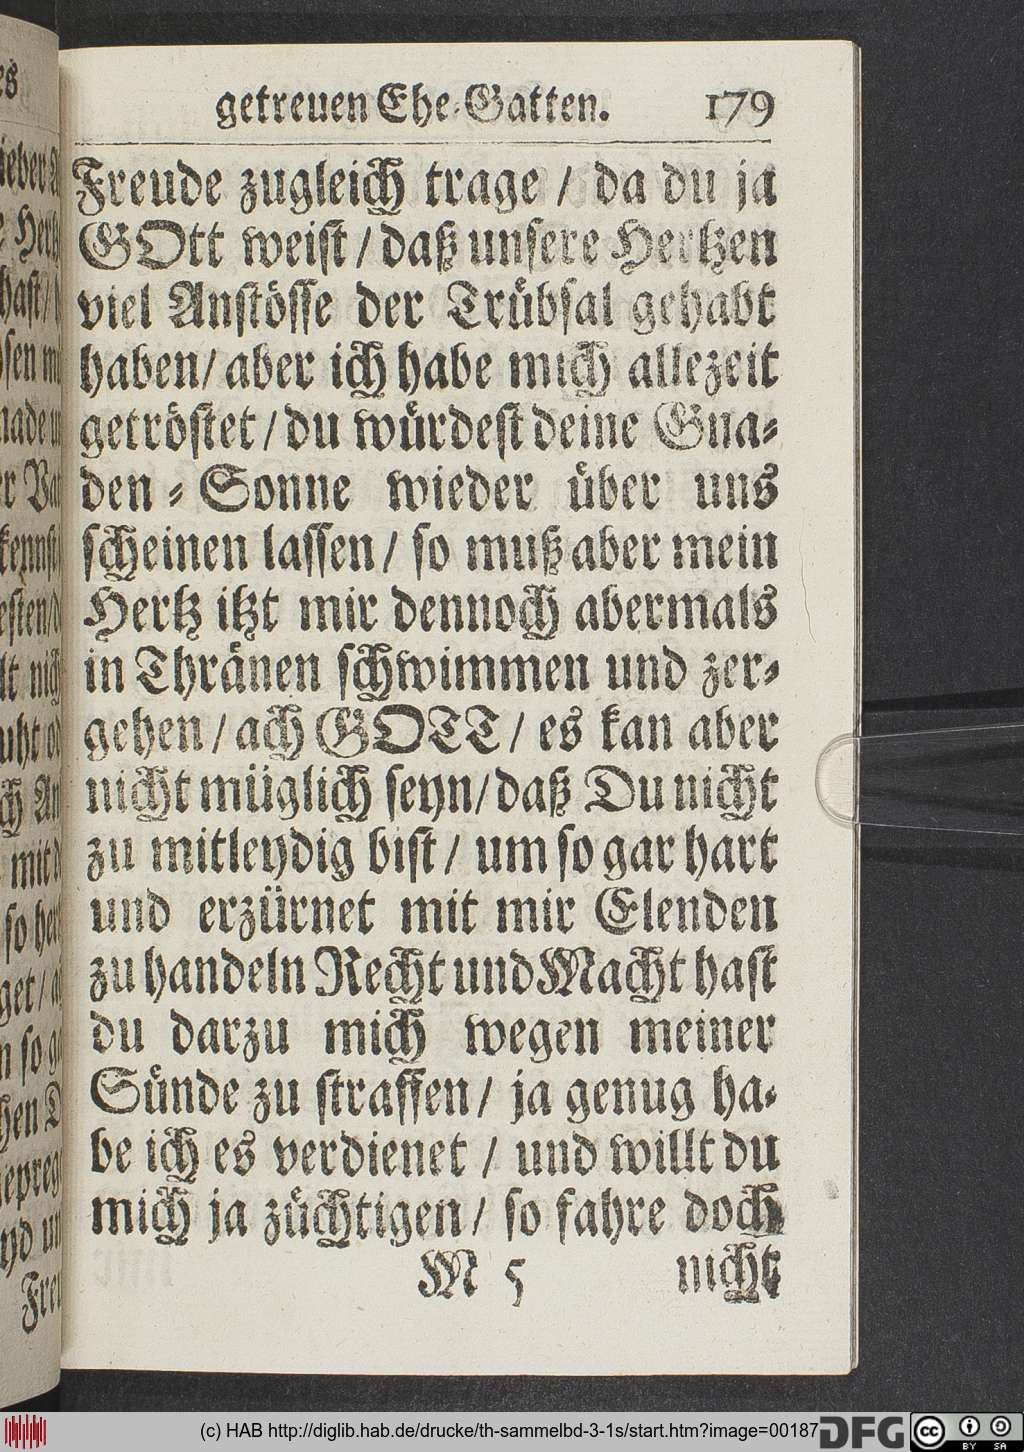 getreuen Ehe-Gatten. 179
Freude zugleich trage / da du ja
GOtt weist / daß unsere Hertzen
viel Anstösse der Trübsal gehabt
haben / aber ich habe mich allezeit
getröstet / du würdest deine Gna-
den-Sonne wieder über uns
scheinen lassen / so muß aber mein
Hertz itzt mir dennoch abermals
in Thränen schwimmen und zer-
gehen / ach GOTT / es kan aber
nicht müglich seyn / daß Du nicht
zu mitleydig bist / um so gar hart
und erzürnet mit mir Elenden
zu handeln Recht und Macht hast
du darzu mich wegen meiner
Sünde zu straffen / ja genug ha-
be ich es verdienet / und willt du
mich ja züchtigen / so fahre doch
M 5 nicht
(c) HAB http://diglib.hab.de/drucke/th-sammelbd-3-1s/start.htm?image=00187
DFG
cc BY SA